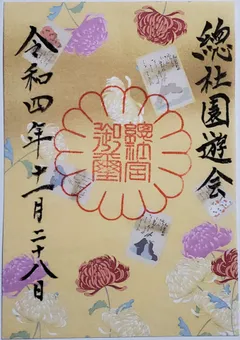 總社園遊会
總社宮
御璽
令和四年十一月二十八日